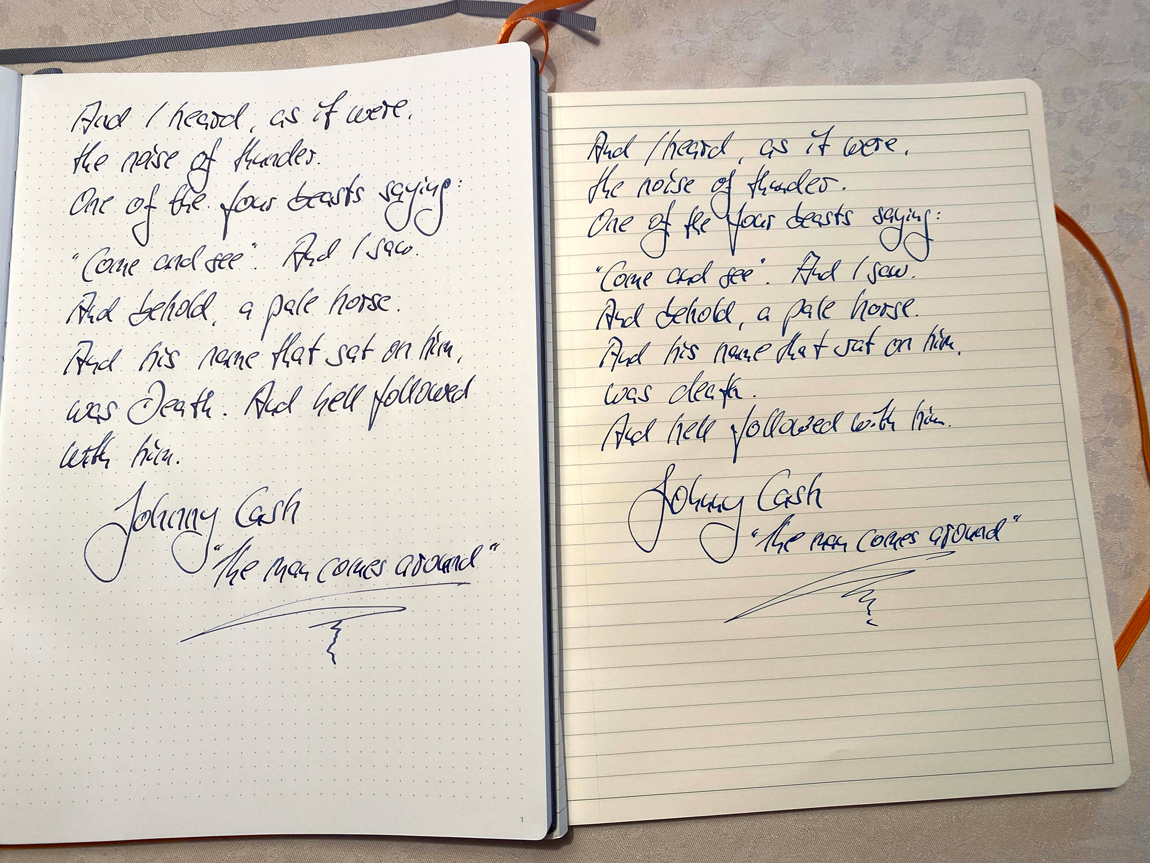 And I heard, as it were,
the noise of thunder.
One of the four beasts saying:
"Come and see". And I saw.
And behold, a pale horse.
And his name that sat on him,
was Death. And hell followed
with him.
Johnny Cash
"The man comes around"
1
And I heard, as it were,
the noise of thunder.
One of the four beasts saying:
"Come and see". And I saw.
And behold, a pale horse.
And his name that sat on him,
was death.
And hell followed with him.
Johnny Cash
"The man comes around"